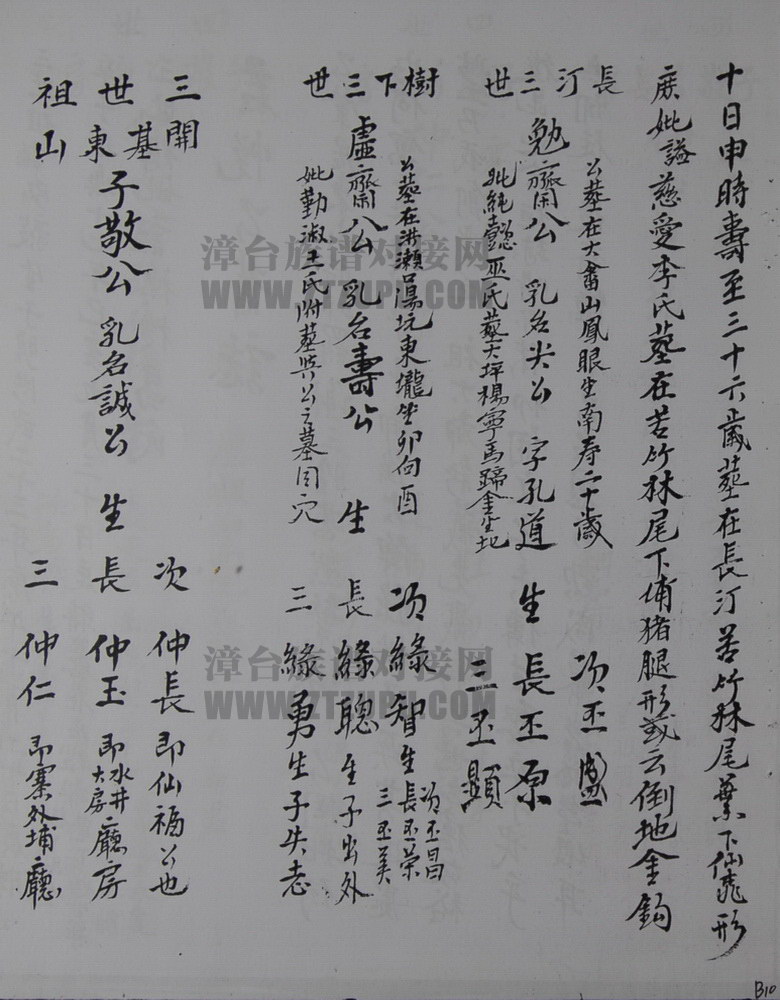 十日申時壽至三十六歲葬在長汀苦竹林尾葉下仙形
妣謚慈愛李氏墓在苦竹林尾下埔猪腿形或云倒地金鈎
長汀三世
公葬在大山鳳眼坐南寿二十歲
勉齋公 乳名尖公 字孔道 生
妣純懿巫氏葬大坪楊寧馬蹄金坐地
次丕盛
長丕原
三丕顯
樹下三世
公墓在洪瀬湯坑東壠坐卯向酉
虛齋公 乳名壽公 生
妣勤淑王氏附墓與公之墓同穴
次緣智生
次丕昌
長丕榮
三丕美
長緣聰生子出外
三緣勇生子失志
三世開基東山祖
子敬公 乳名誠公 生
次 仲長即仙福公也
長 仲玉 即水井大房廳房
三 仲仁 即寨外埔廳
漳台族谱对接网
WWW.ZTZUPU.COM
漳台族谱对接网
WWW.ZTZUPU.COM
B10